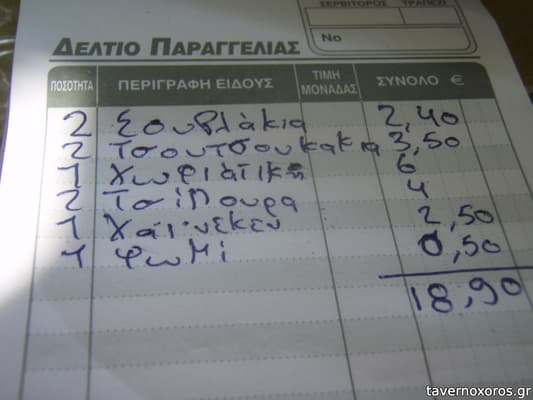 ΣΕΡΒΙΤΟΡΟΣ ΤΡΑΠΕΖΙ
No
ΔΕΛΤΙΟ ΠΑΡΑΓΓΕΛΙΑΣ
ΠΟΣΟΤΗΤΑ ΠΕΡΙΓΡΑΦΗ ΕΙΔΟΥΣ ΤΙΜΗ ΜΟΝΑΔΑΣ ΣΥΝΟΛΟ €
2 Σουβλάκια 2,40
2 Τσουτσουκακια 3,50
1 Χωριάτικη 6
2 Τσίπουρα 4
1 Χάινεκεν 2,50
1 Ψωμί 0,50
18,90
tavernoxoros.gr